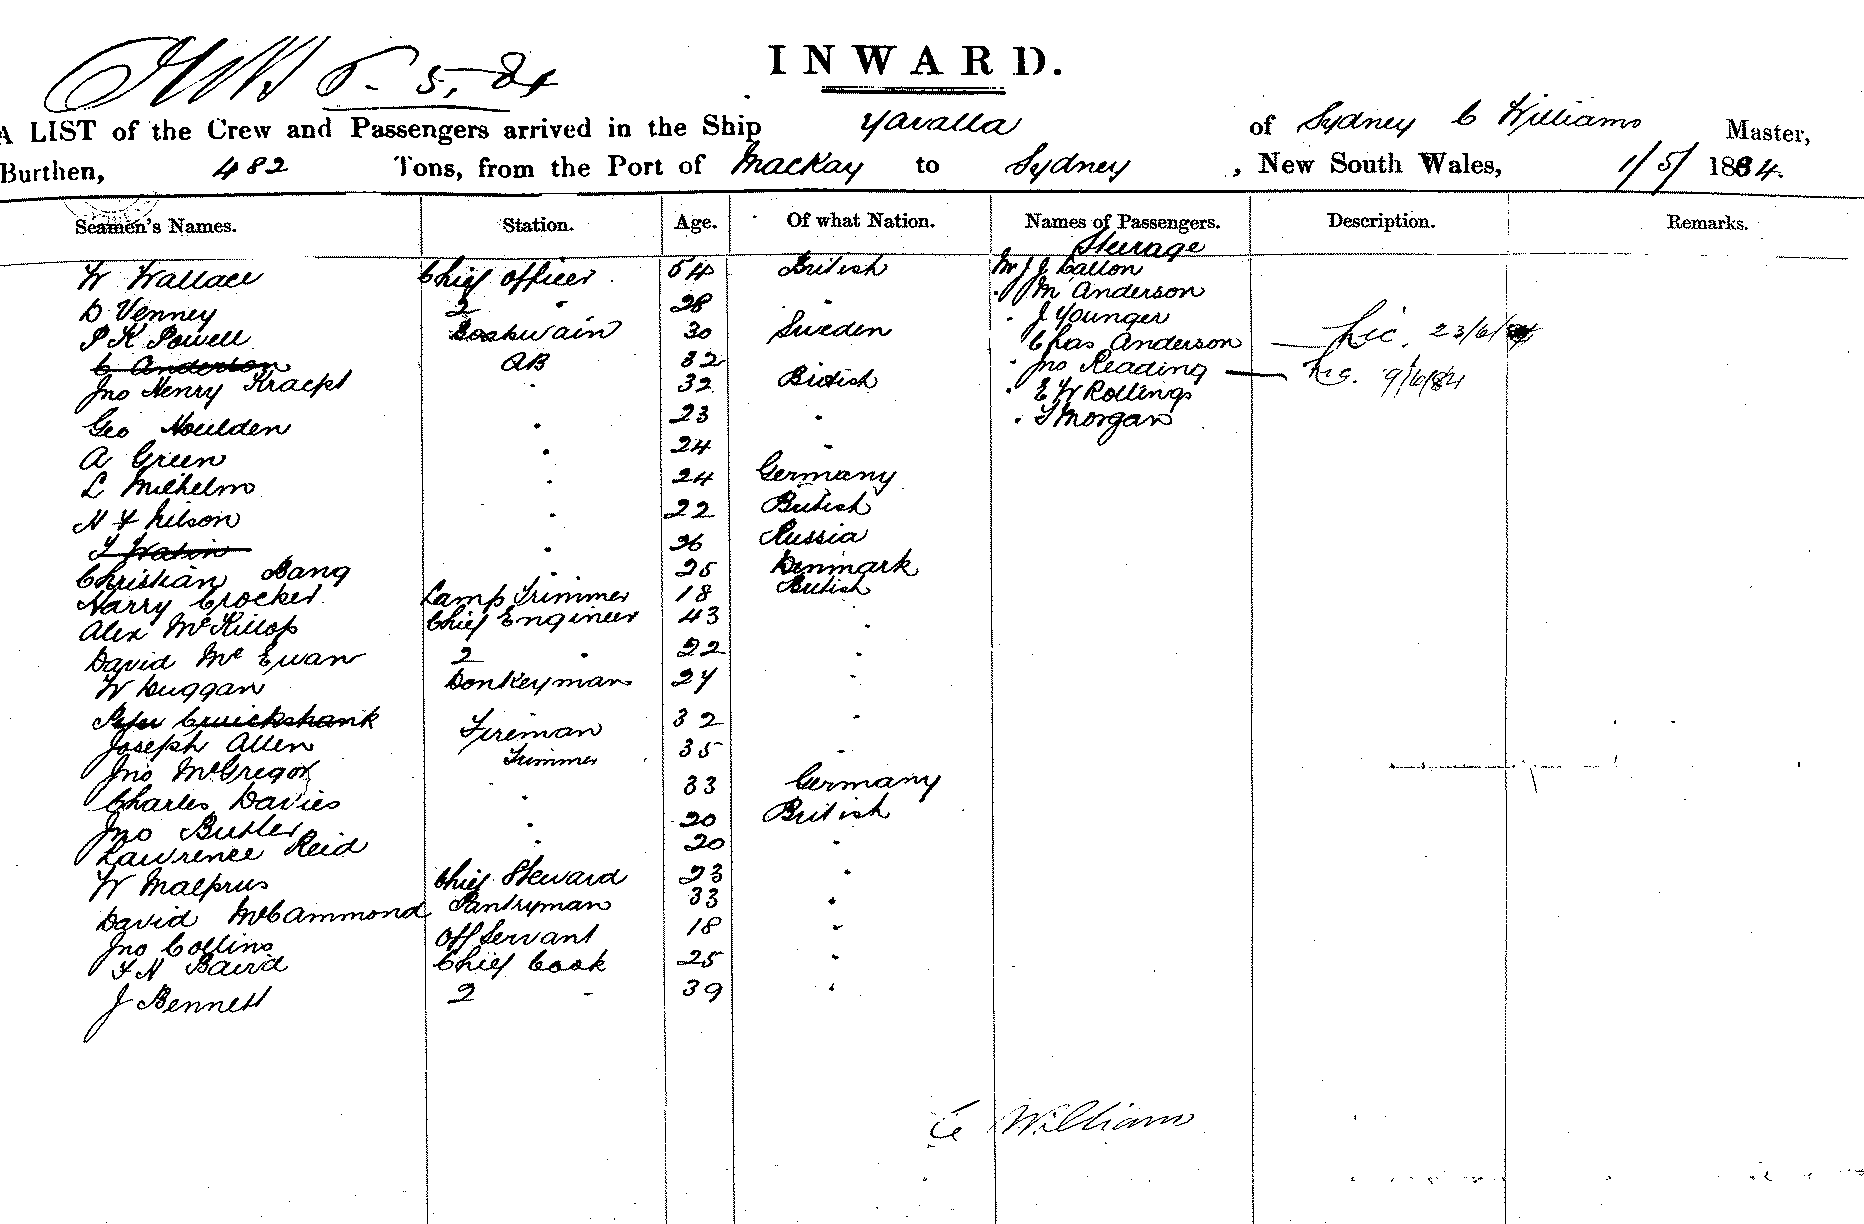 5. 5. 84
INWARD.
A LIST of the Crew and Passengers arrived in the Ship Yaralla of Sydney C Williams Master,
Burthen, 482 Tons, from the Port of Mackay to Sydney, New South Wales, 1/5/ 1884.
Seamen's Names. Station. Age. Of what Nation. Names of Passengers. Description. Remarks.
Steerage
W Wallace Chief Officer 54 British Mr J J Callon
D Venney 2 " 28 " " M Anderson
P K Powell Boatswain 30 Sweden " J Younger
C Anderson AB 32 Chas Anderson Lic. 23/6/84
Jno Henry Kracht " 32 British " Jno Reading 9/6/84
Geo Houlden " 23 " " E W Rollings
A Green " 24 " " T Morgan
L Wilhelm " 24 Germany
H F Nilson " 22 British
" 26 Russia
Christian Bang " 25 Denmark
Harry Crocker Lamp Trimmer 18 British
Alex McKillop Chief Engineer 43 "
David Mc Ewan 2 " 22 "
W Duggan Donkeyman 27 "
Peter Cruickshank Fireman 32 "
Joseph Allen Trimmer 35 "
Jno McGregor " 33 Germany
Charles Davies " 20 British
Jno Butler " 20 "
Lawrence Reid
W Malprus Chief Steward 23 "
David McCammond Pantryman 33 "
Jno Collins Off Servant 18 "
F H Baird Chief Cook 25 "
J Bennett 2 " 39 "
C William